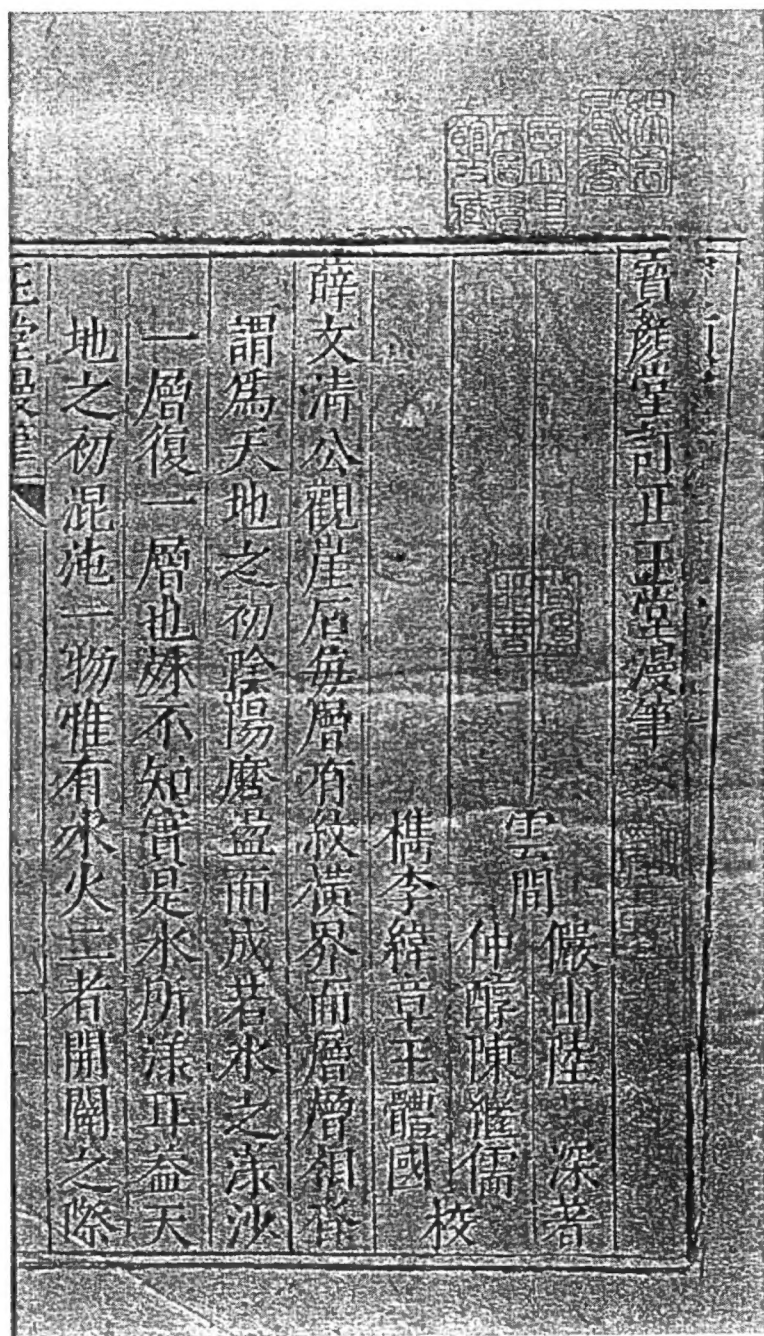 寳顏堂訂正玉堂漫筆
雲間
儼山陸 深著
仲醇陳繼儒
檇李緯章王體國 校
薛文清公觀崖石每層有紋橫界而層層相沓
謂爲天地之初陰陽磨盪而成若水之漾沙
一層復一層也殊不知實是水所漾耳葢天
地之初混沌一物惟有水火二者開闢之際
玉堂漫筆